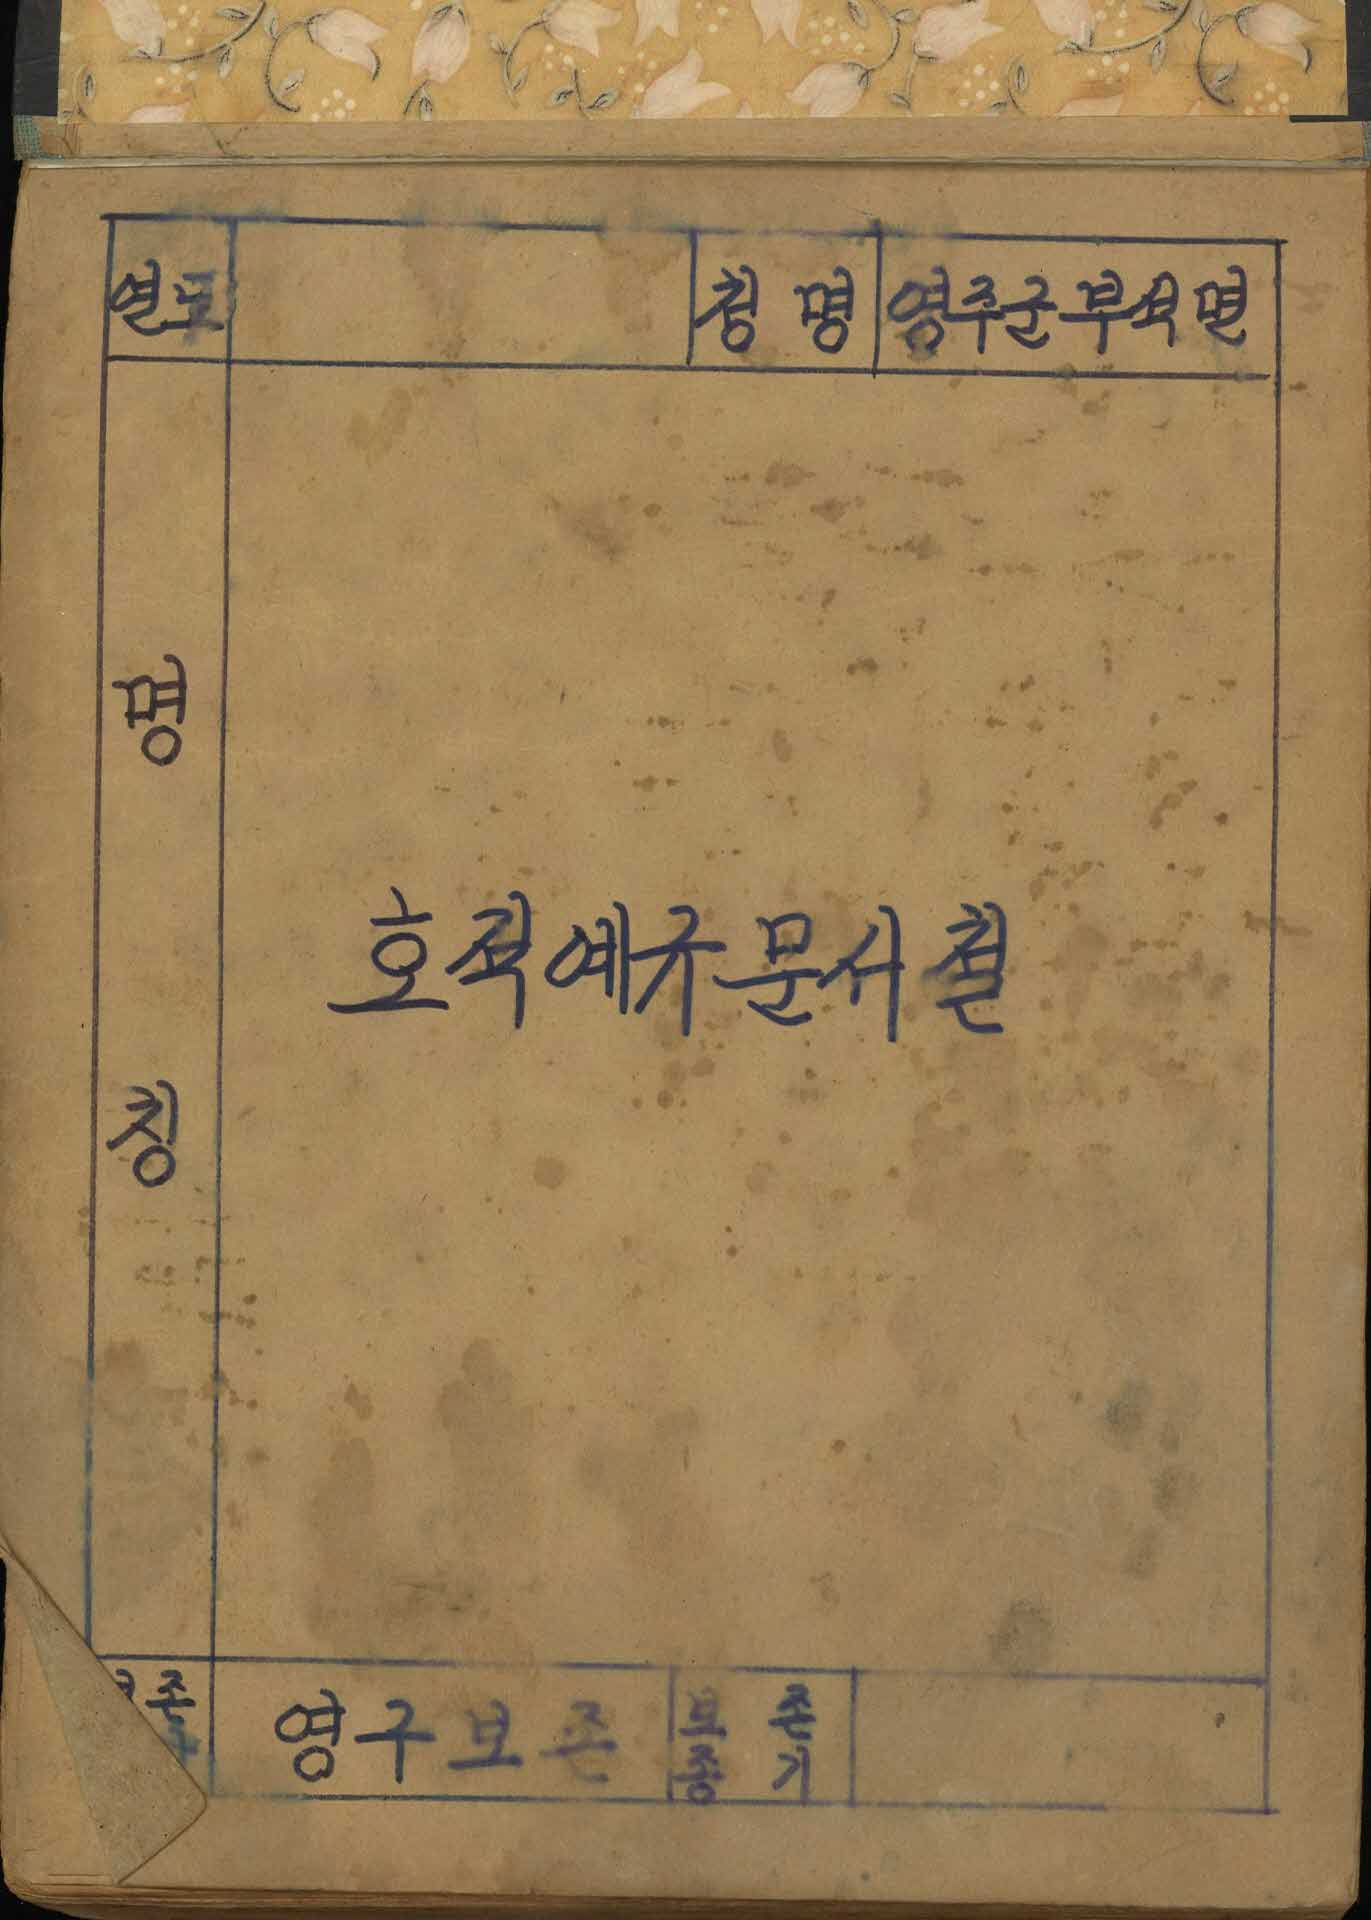 년도 청 명 영주군부석면
명
칭
호적예규문서철
존 영구보존 보 존
종 기